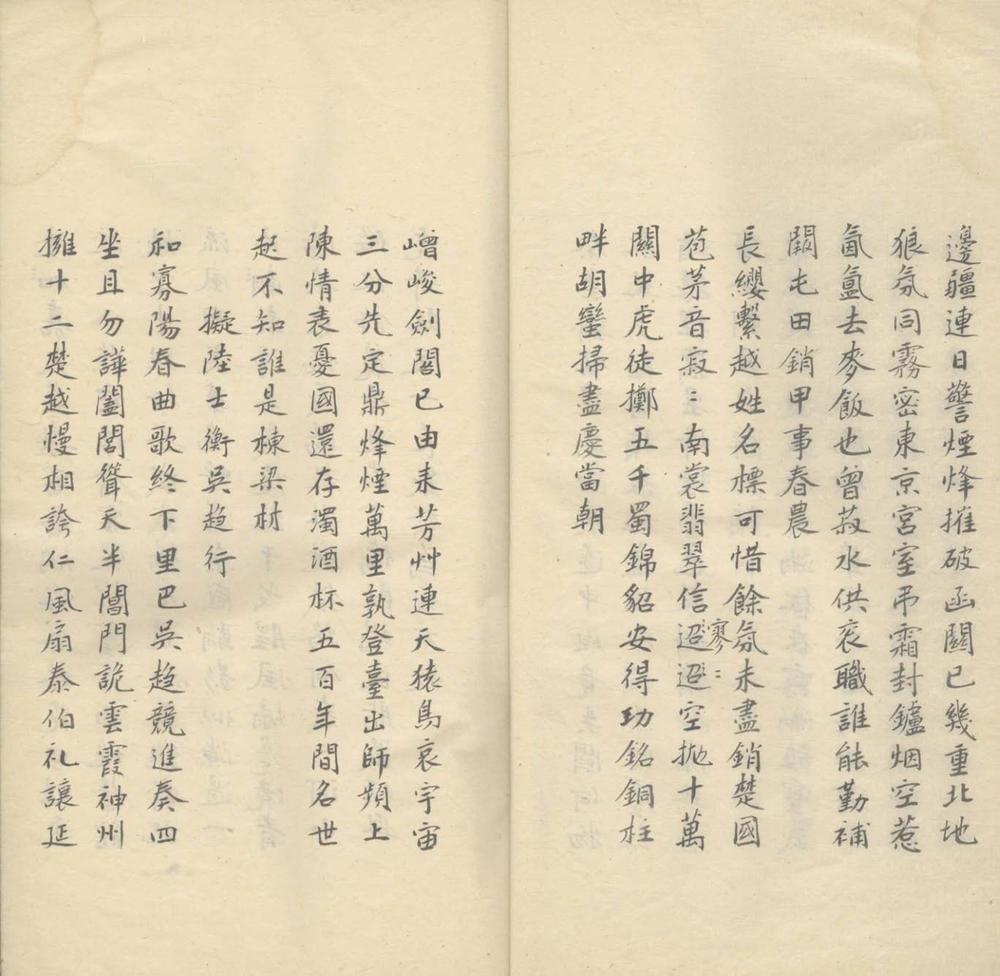 邊疆連日警煙烽摧破函關已幾重北地
狼氛同霧密東京宮室弔霜封鑪烟空惹
氤氳去麥飯也曾菽水供衮職誰能勤補
闕屯田銷甲事春農
長纓繫越姓名標可惜餘氛未盡銷楚國
苞茅音寂〻南裳翡翠信迢迢空拋十萬
寥〻
關中虎徒擲五千蜀錦貂安得功銘銅柱
畔胡蠻掃盡慶當朝
嶒峻劍閣已由来芳艸連天猿鳥哀宇宙
三分先定鼎烽煙萬里孰登臺出師頻上
陳情表憂國還存濁酒杯五百年間名世
起不知誰是棟梁材
擬陸士衡吳趨行
和寡陽春曲歌終下里巴吳趨競進奏四
坐且勿譁闔閭聳天半閶門詭雲霞神州
擁十二楚越慢相誇仁風扇泰伯礼讓延